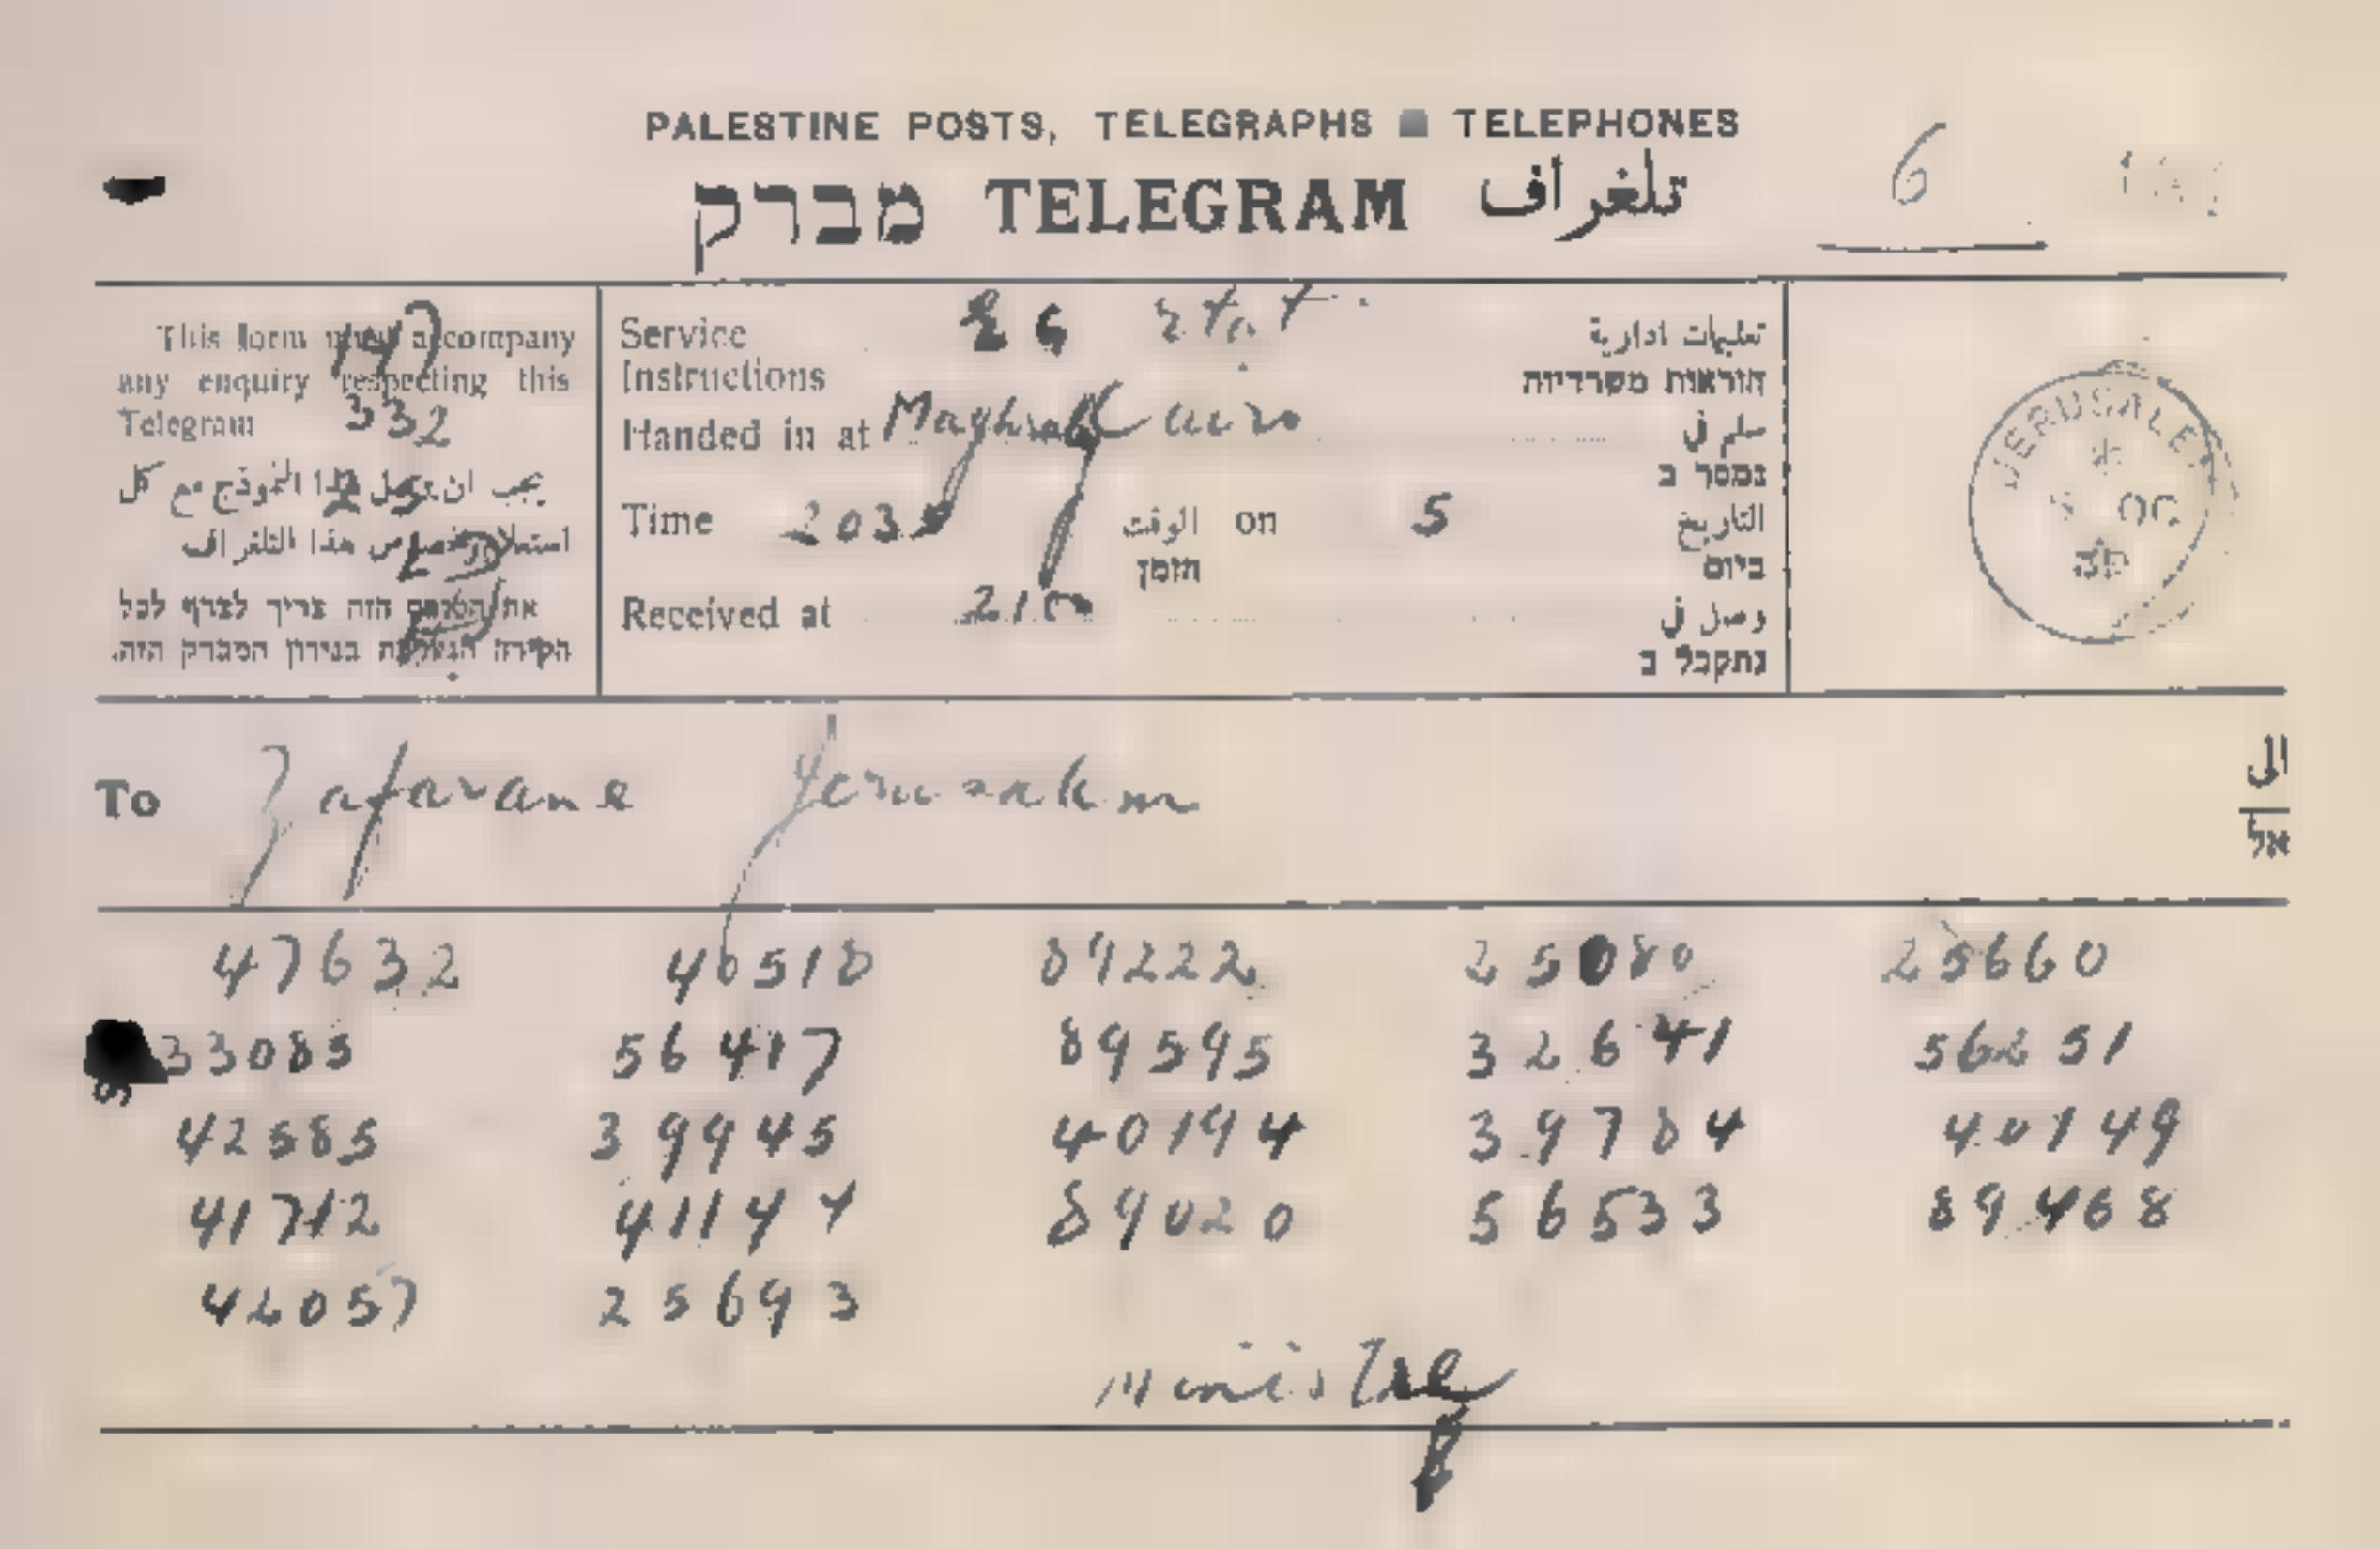 PALESTINE POSTS, TELEGRAPHS TELEPHONES
מברק TELEGRAM تلغراف
6
This form must accompany
any enquiry respecting this
Telegram
147
332
25
يجب ان يحمل هذا النموذج مع كل
استعلام بخصوص هذا التلغراف
את הטופס הזה צריך לצרף לכל
חקירה הנוגעת בנידון המברק הזה.
Service
Instructions
26 etat
تعليمات ادارية
הוראות משרדיות
Handed in at Cairo
سلم في
נמסר ב
Time 203 الوقت on 5 التاريخ
הזמן ביום
Received at 210 وصل في
נתקבל ב
JERUSALEM
OC
To Zafarane Jerusalem الى
אל
47632 46518 89222 25080 25660
33085 56417 89595 32641 56251
42585 39945 40194 39784 40149
41712 41144 89020 56533 89468
42057 25693